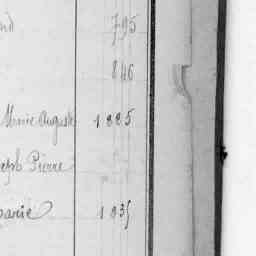 nd 795
846
Marie Auguste 1885
seph Pierre
Marie 1835